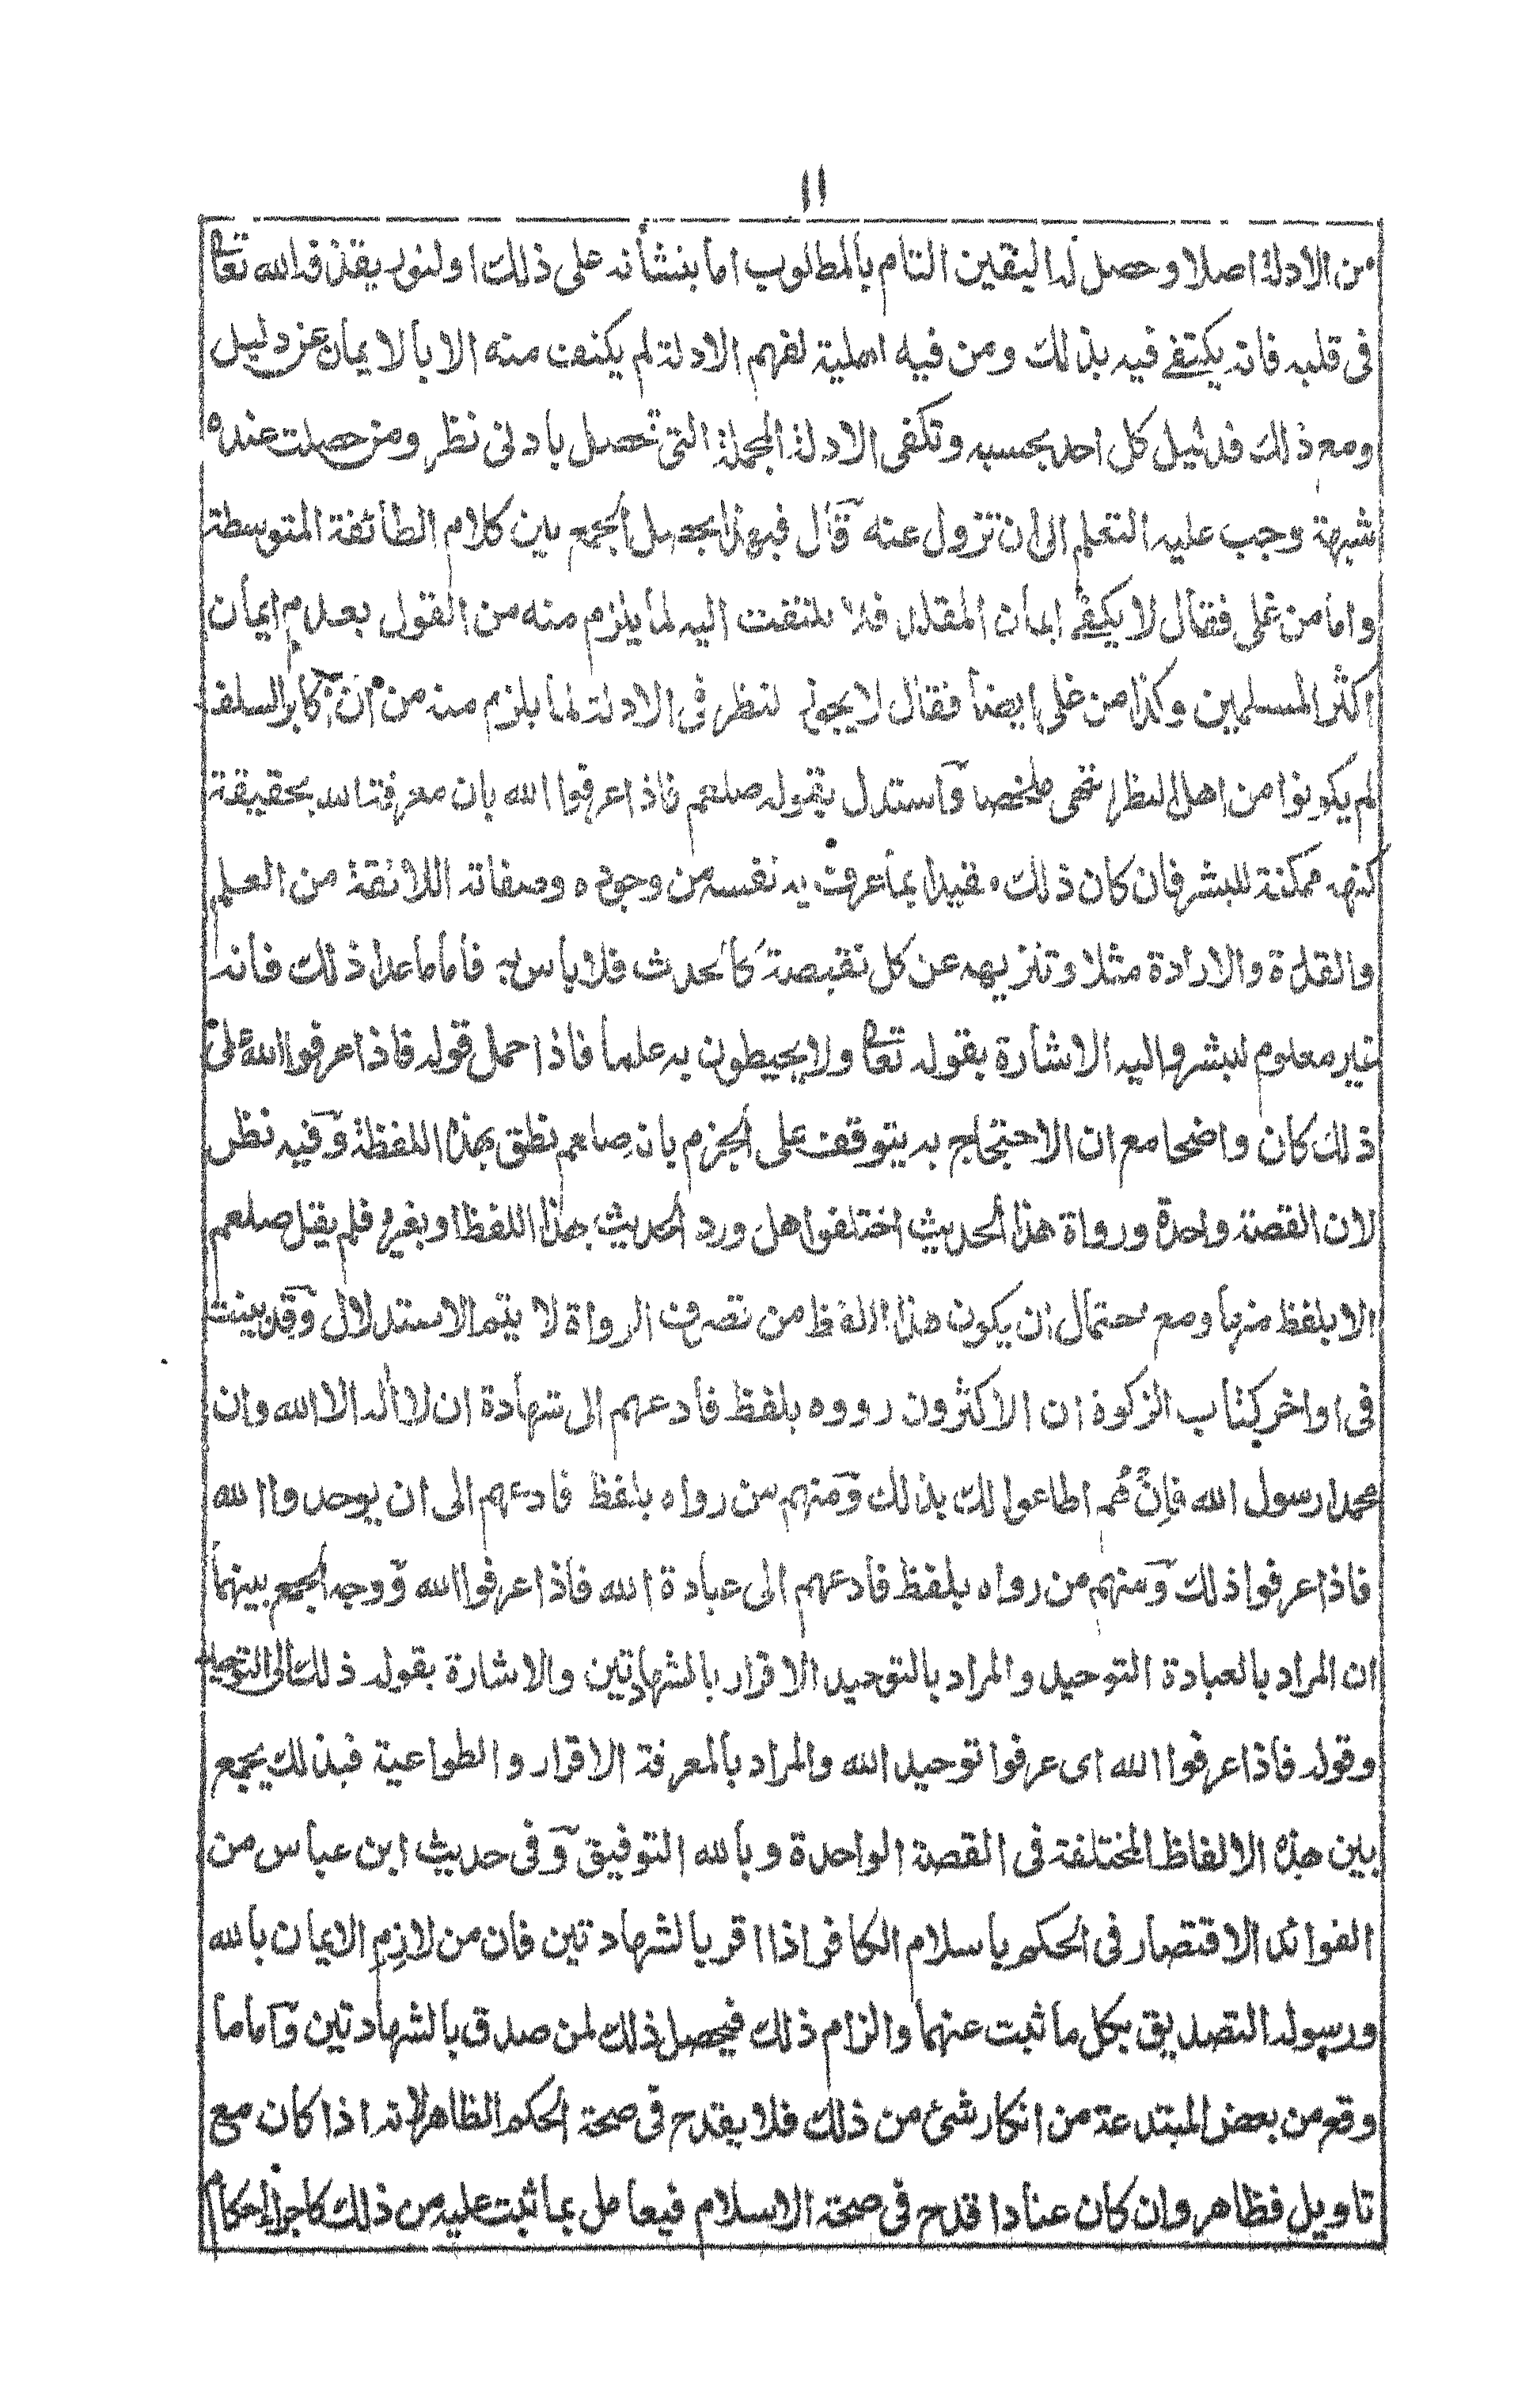 ۱۱
من الادلة اصلا وحصل له اليقين التام بالمطلوب اما بنشأنه على ذلك او لنور يقذفه الله تعا
فى قلبه فانه يكتفے فيه بذلك ومن فيه اهلية لفهم الادلة لم يكتف منه الا بالايمان عن دليل
ومع ذلك فدليل كل احد بحسبه وتكفى الادلة المجملة التى تحصل بادنى نظر ومن حصلت عنده
شبهة وجب عليه التعلم الى ان تزول عنه قال فبهذا يحصل الجمع بين كلام الطائفة المتوسطة
واما من غلى فقال لا يكفے ايمان المقلد فلا يلتفت اليه لما يلزم منه من القول بعدم ايمان
اكثر المسلمين وكذا من غلى ايضا فقال لا يجوز لنظر فى الادلة لما يلزم منه من ان اكابر السلف
لم يكونوا من اهل النظر انتهى ملخصا واستدل بقوله صلعم فاذا عرفوا الله بان معرفة الله بحقيقة
كنهه ممكنة للبشر فان كان ذلك مقيدا بما عرف به نفسه من وجوده وصفاته اللائقة من العلم
والقدرة والارادة مثلا وتنزيهه عن كل نقيصة كالحدث فلا باس به فاما ما عدا ذلك فانه
غير معلوم للبشر واليه الاشارة بقوله تعا ولا يحيطون به علما فاذا حمل قوله فاذا عرفوا الله على
ذلك كان واضحا مع ان الاحتجاج به يتوقف على الجزم بانه صلعم نطق بهذه اللفظة وفيه نظر
لان القصة واحدة ورواة هذا الحديث اختلفوا هل ورد الحديث بهذا اللفظ او بغيره فلم يقل صلعم
الا بلفظ منها ومع احتمال ان يكون هذا اللفظ من تصرف الرواة لا يتم الاستدلال وقد بينت
فى اواخر كتاب الزكوة ان الاكثرون رووه بلفظ فادعهم الى شهادة ان لا اله الا الله وان
محمدا رسول الله فان هم اطاعوا لك بذلك ومنهم من رواه بلفظ فادعهم الى ان يوحدوا الله
فاذا عرفوا ذلك ومنهم من رواه بلفظ فادعهم الى عبادة الله فاذا عرفوا الله ووجه الجمع بينهما
ان المراد بالعبادة التوحيد والمراد بالتوحيد الاقرار بالشهادتين والاشارة بقوله ذلك الى التوحيد
وقوله فاذا عرفوا الله اى عرفوا توحيد الله والمراد بالمعرفة الاقرار والطواعية فبذلك يجمع
بين هذه الالفاظ المختلفة فى القصة الواحدة وبالله التوفيق وفى حديث ابن عباس من
الفوائد الاقتصار فى الحكم باسلام الكافر اذا اقر بالشهادتين فان من لازم الايمان بالله
ورسوله التصديق بكل ما ثبت عنهما والزام ذلك فيحصل ذلك لمن صدق بالشهادتين واما ما
وقع من بعض المبتدعة من انكار شئ من ذلك فلا يقدح فى صحة الحكم الظاهر لانه اذا كان مع
تاويل فظاهر وان كان عنادا قدح فى صحة الاسلام فيعامل بما ثبت عليه من ذلك كاجراء احكام